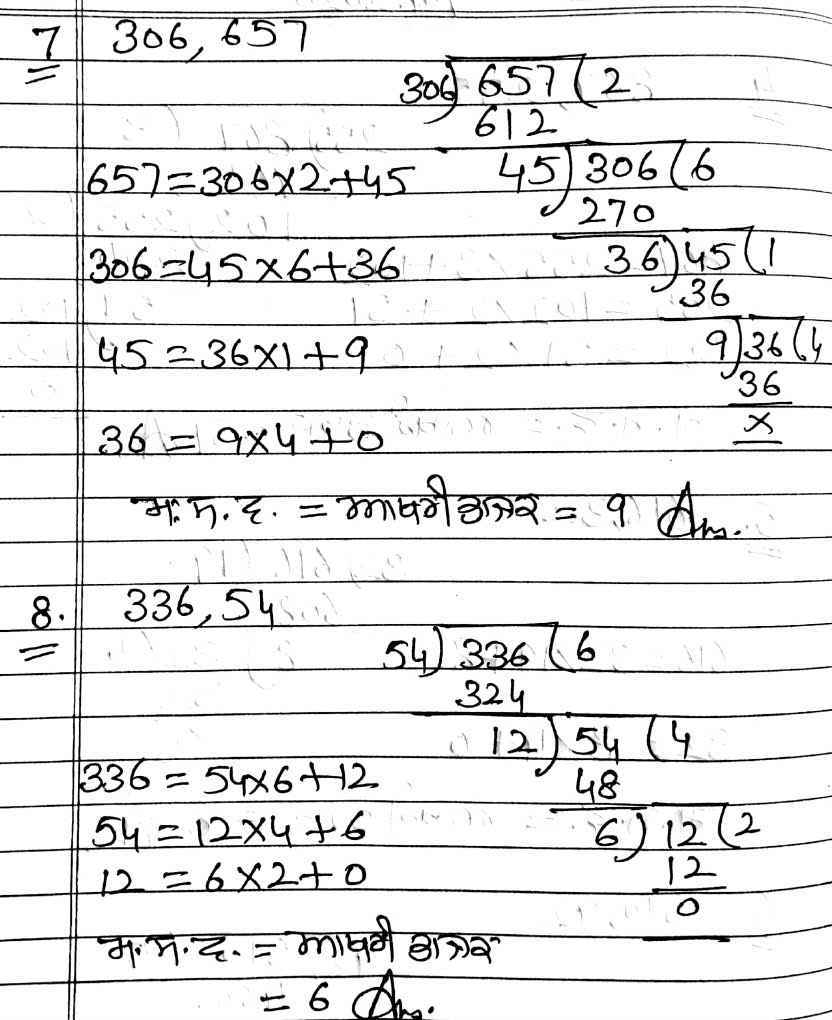 7 306, 657
306) 657 ( 2
612
657 = 306×2+45 45) 306 ( 6
270
306 = 45×6+36 36) 45 ( 1
36
45 = 36×1+9 9) 36 ( 4
36
×
36 = 9×4+0
ਮ.ਸ.ਵ. = ਆਖਰੀ ਭਾਜਕ = 9 Ans.
8. 336, 54
54) 336 ( 6
324
12) 54 ( 4
336 = 54×6+12 48
54 = 12×4+6 6) 12 ( 2
12 = 6×2+0 12
0
ਮ.ਸ.ਵ. = ਆਖਰੀ ਭਾਜਕ
= 6 Ans.